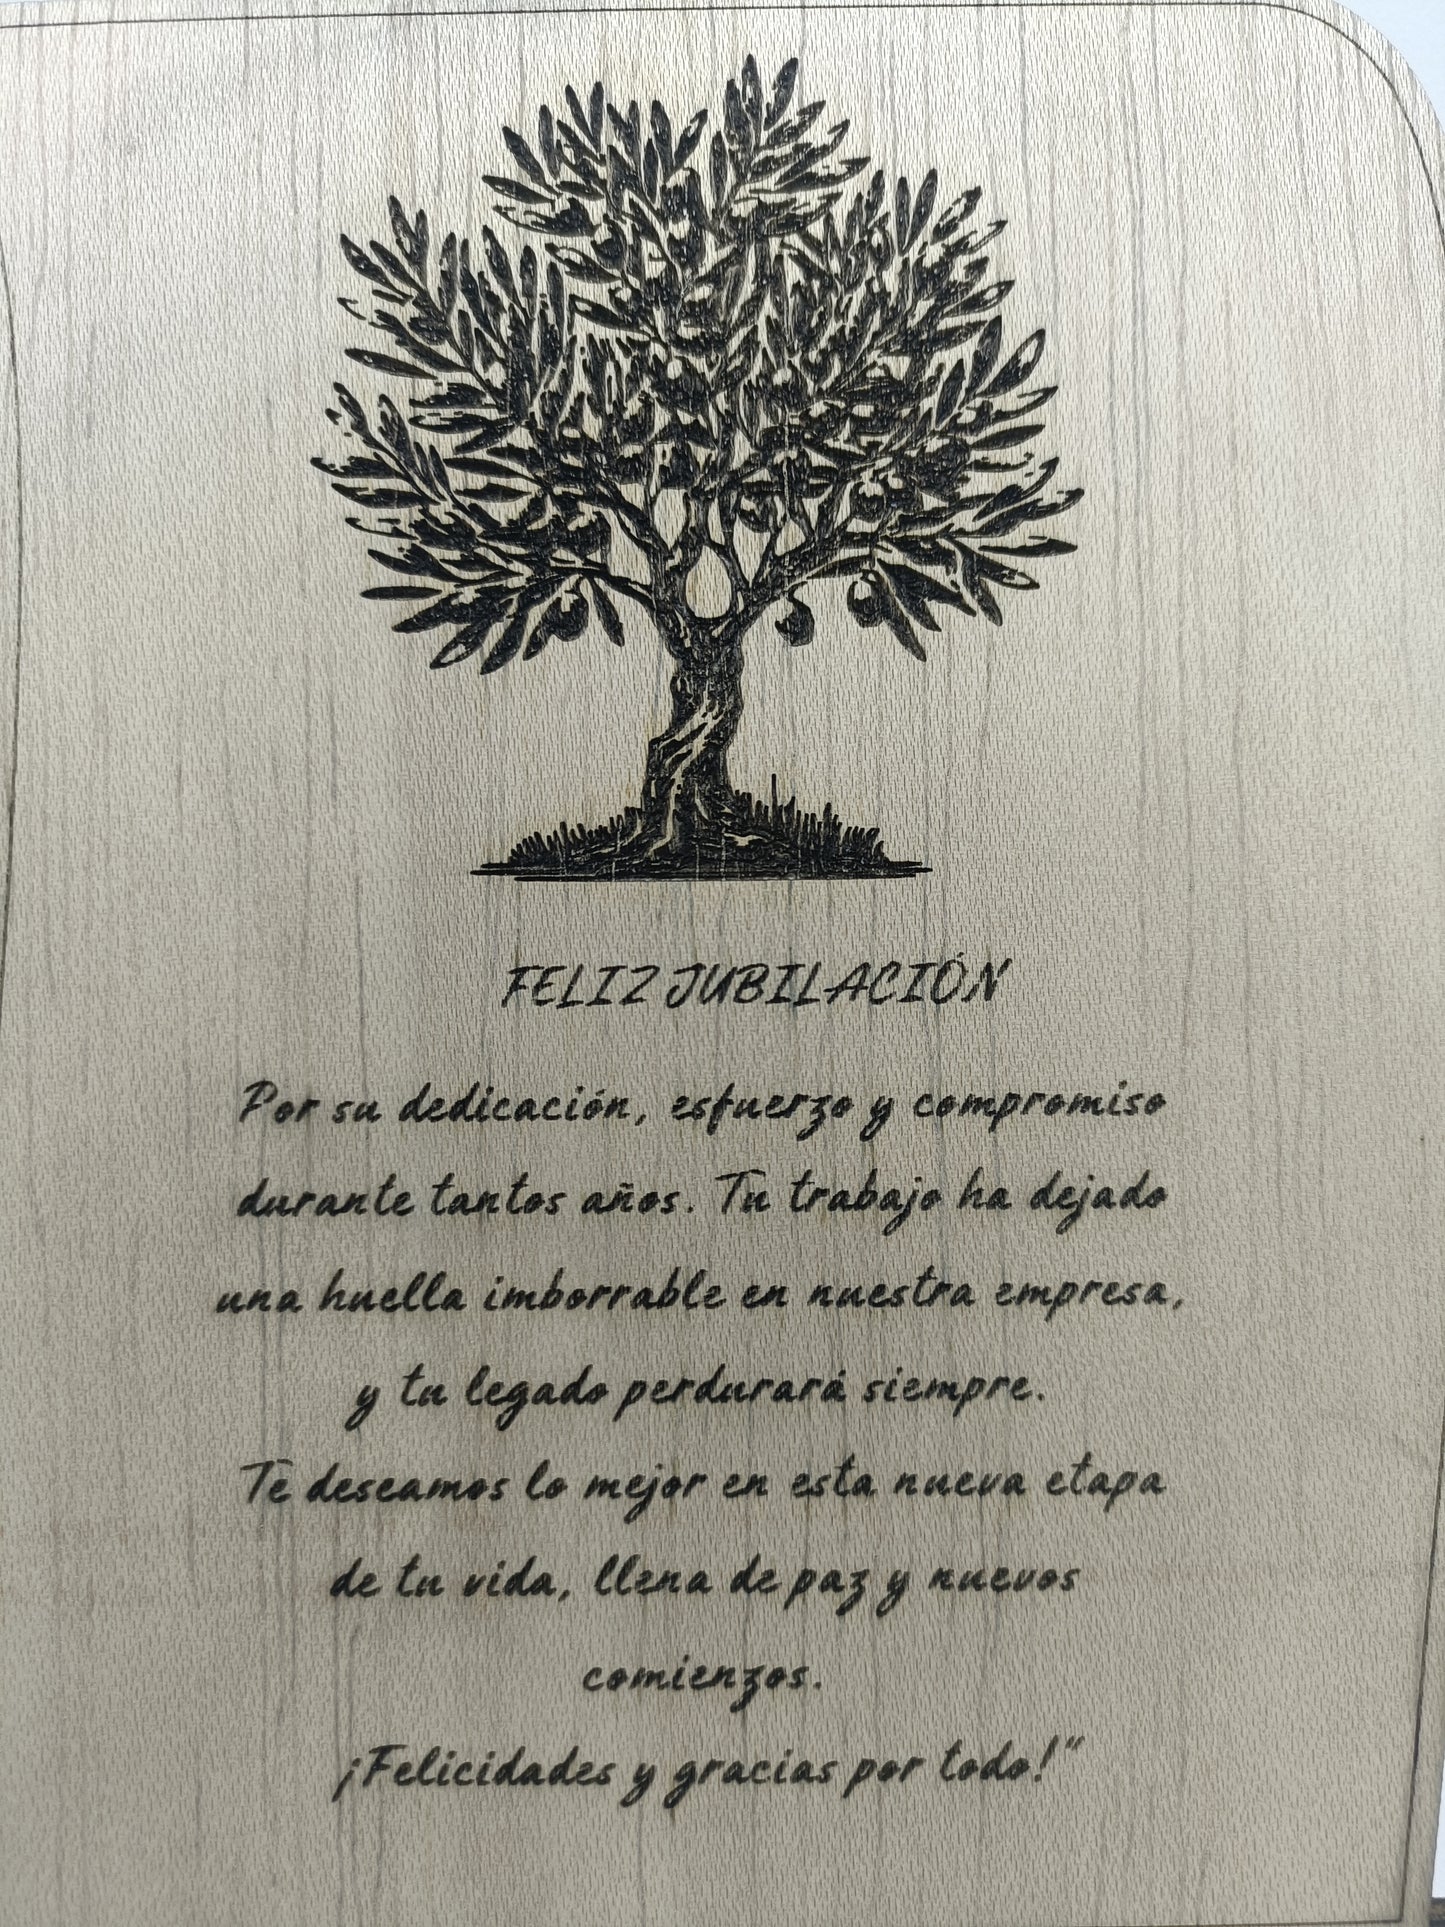 FELIZ JUBILACIÓN
Por su dedicación, esfuerzo y compromiso
durante tantos años. Tu trabajo ha dejado
una huella imborrable en nuestra empresa,
y tu legado perdurará siempre.
Te deseamos lo mejor en esta nueva etapa
de tu vida, llena de paz y nuevos
comienzos.
¡Felicidades y gracias por todo!"